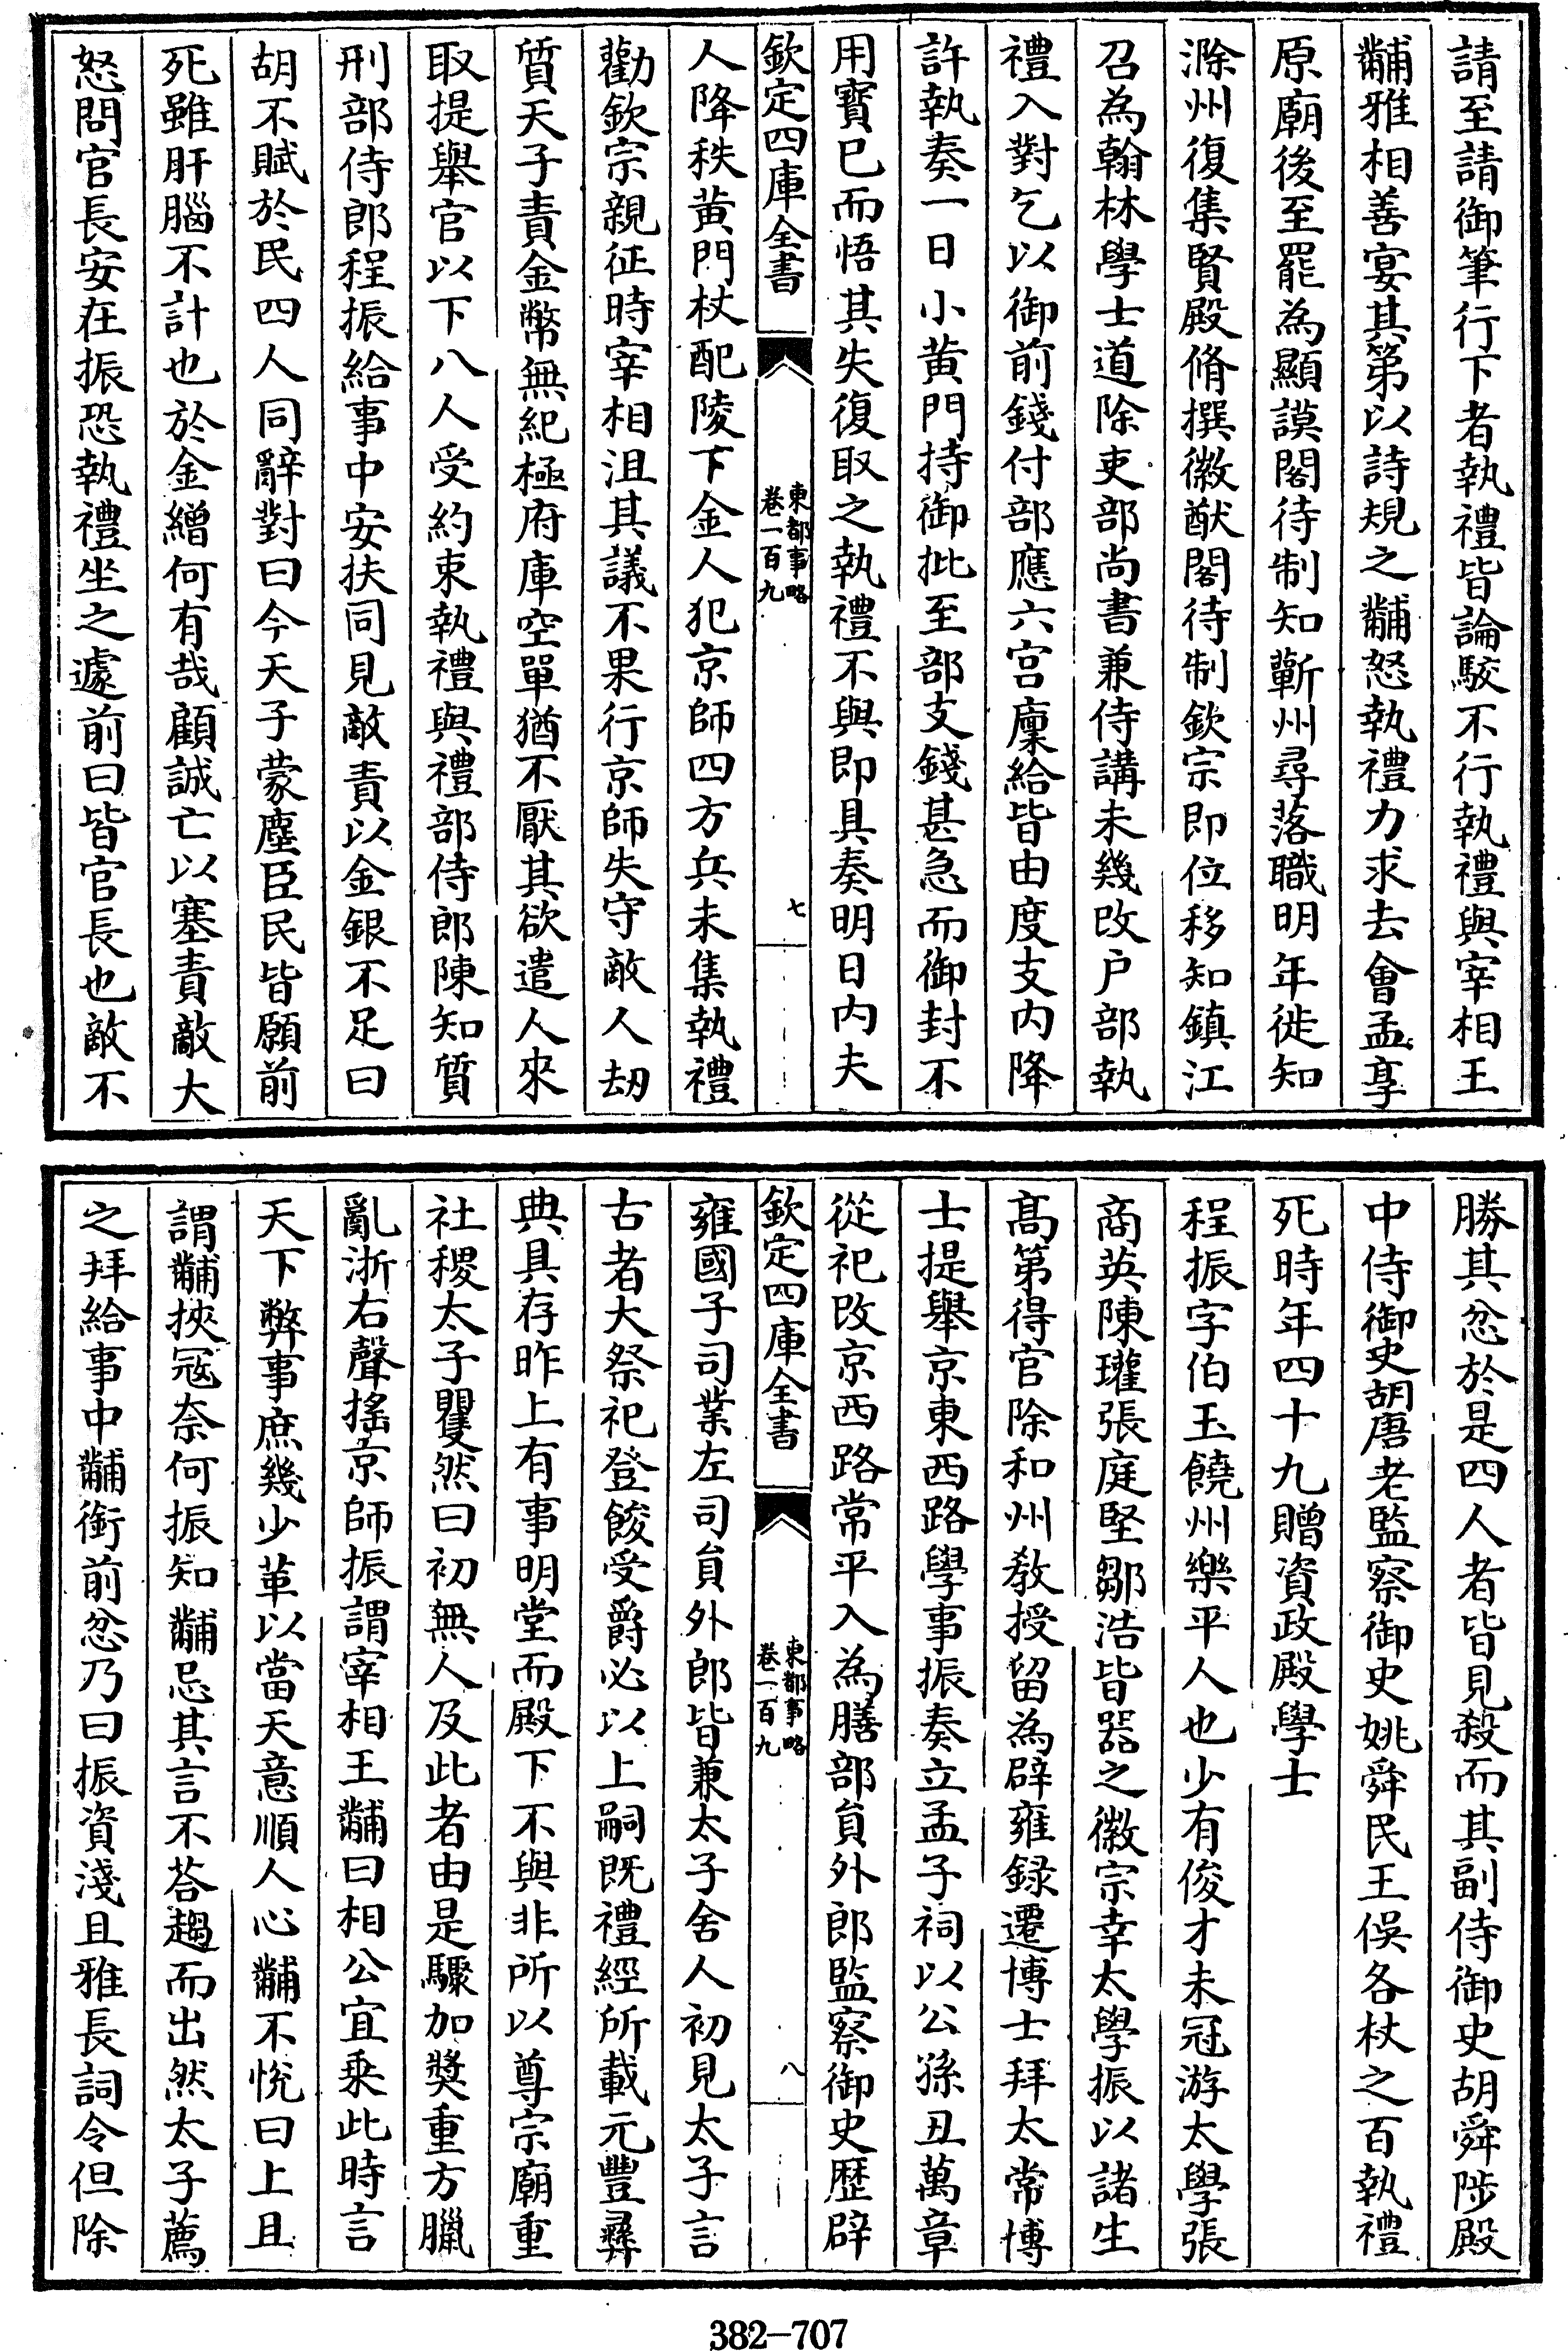 請至請御筆行下者執禮皆論駮不行執禮與宰相王
黼雅相善宴其第以詩規之黼怒執禮力求去會孟享
原廟後至罷為顯謨閣待制知蘄州尋落職明年徙知
滁州復集賢殿脩撰徽猷閣待制欽宗即位移知鎮江
召為翰林學士道除吏部尚書兼侍講未幾改户部執
禮入對乞以御前錢付部應六宫廩給皆由度支内降
許執奏一日小黄門持御批至部支錢甚急而御封不
用寶已而悟其失復取之執禮不與即具奏明日内夫
欽定四庫全書
東都事略
卷一百九
七
人降秩黄門杖配陵下金人犯京師四方兵未集執禮
勸欽宗親征時宰相沮其議不果行京師失守敵人刼
質天子責金幣無紀極府庫空單猶不厭其欲遣人來
取提舉官以下八人受約束執禮與禮部侍郎陳知質
刑部侍郎程振給事中安扶同見敵責以金銀不足曰
胡不賦於民四人同辭對曰今天子蒙塵臣民皆願前
死雖肝腦不計也於金繒何有哉顧誠亡以塞責敵大
怒問官長安在振恐執禮坐之遽前曰皆官長也敵不
勝其忿於是四人者皆見殺而其副侍御史胡舜陟殿
中侍御史胡唐老監察御史姚舜民王俁各杖之百執禮
死時年四十九贈資政殿學士
程振字伯玉饒州樂平人也少有俊才未冠游太學張
商英陳瓘張庭堅鄒浩皆器之徽宗幸太學振以諸生
髙第得官除和州教授留為辟雍録遷博士拜太常博
士提舉京東西路學事振奏立孟子祠以公孫丑萬章
從祀改京西路常平入為膳部貟外郎監察御史歴辟
欽定四庫全書
東都事略
卷一百九
八
雍國子司業左司貟外郎皆兼太子舍人初見太子言
古者大祭祀登餕受爵必以上嗣既禮經所載元豐彛
典具存昨上有事明堂而殿下不與非所以尊宗廟重
社稷太子矍然曰初無人及此者由是驟加奬重方臘
亂浙右聲摇京師振謂宰相王黼曰相公宜乗此時言
天下弊事庶幾少革以當天意順人心黼不悦曰上且
謂黼挾冦奈何振知黼忌其言不荅趨而出然太子薦
之拜給事中黼銜前忿乃曰振資淺且雅長詞令但除
382-707